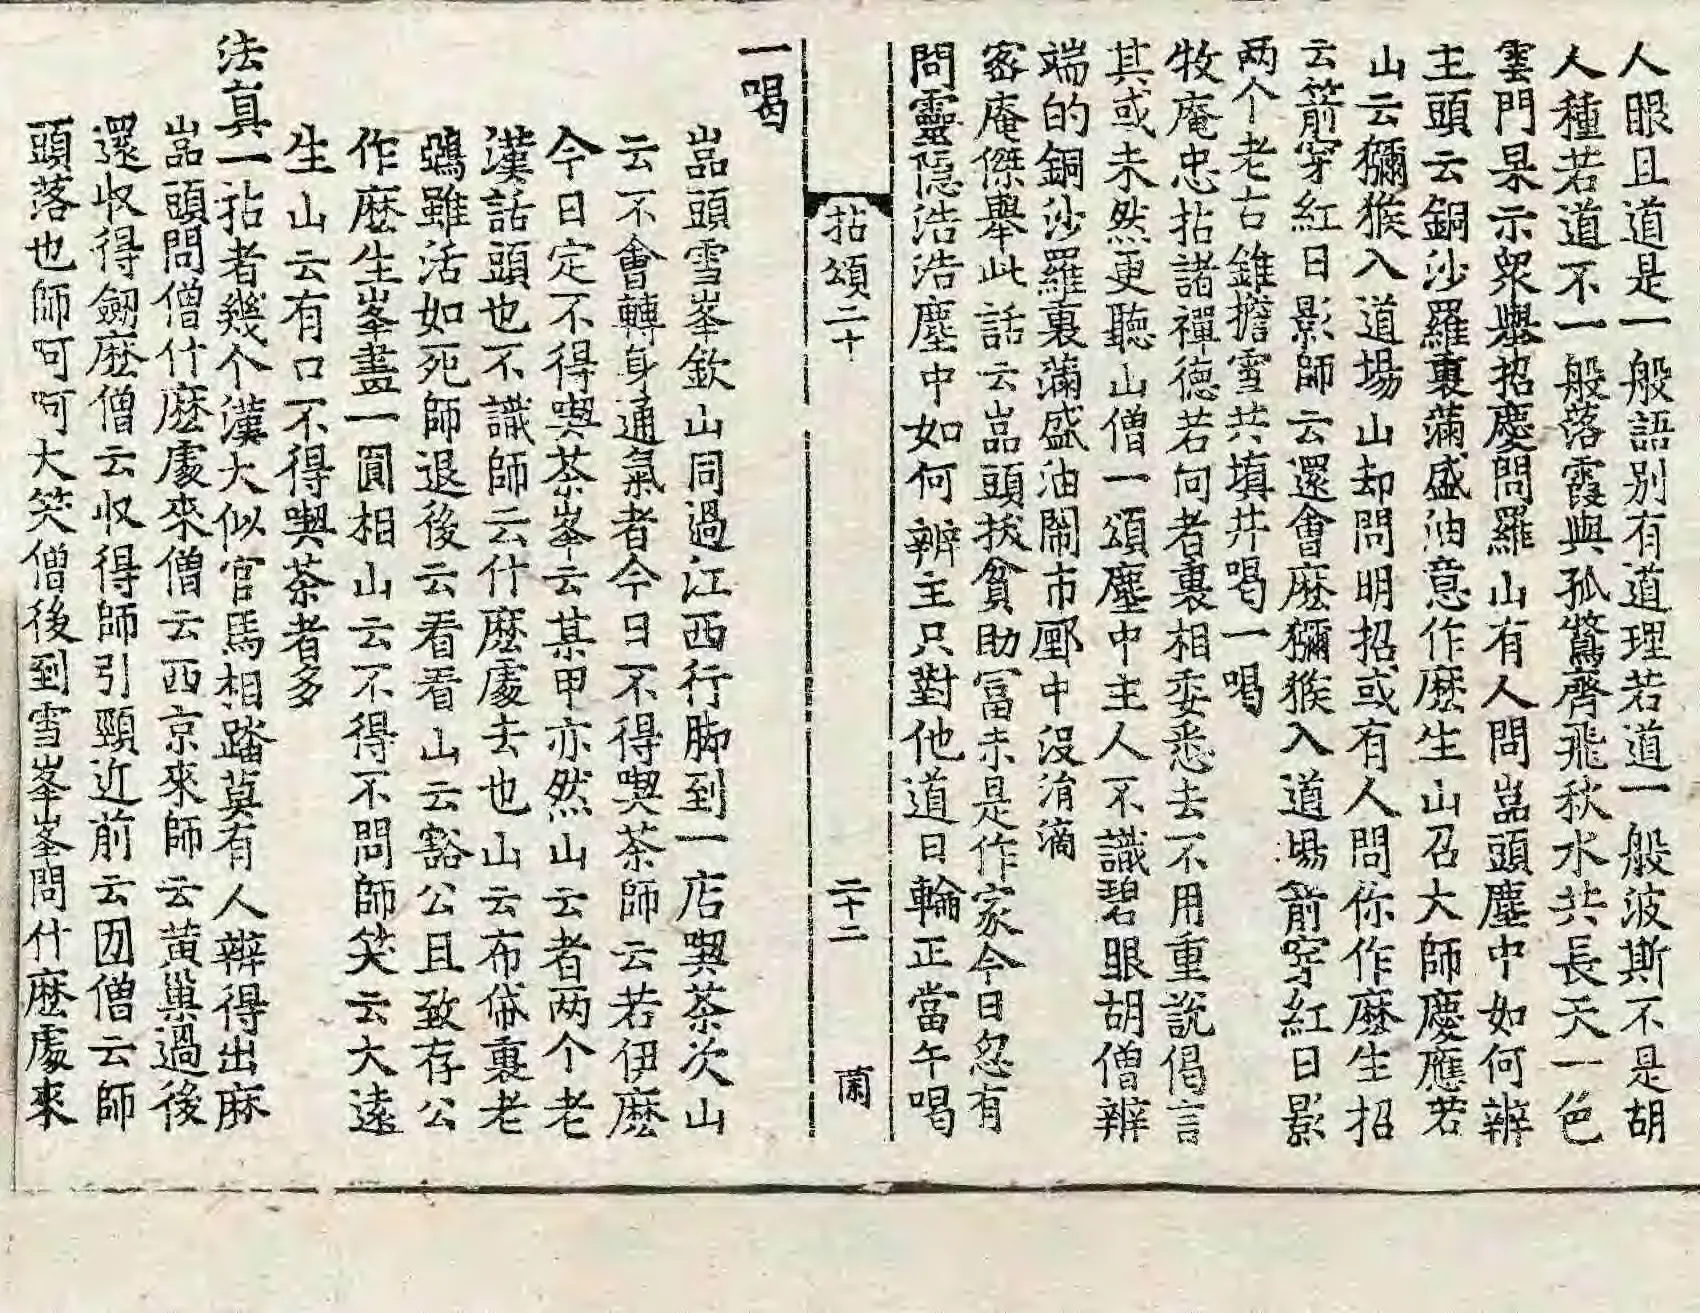 人眼且道是一般語別有道理若道一般波斯不是胡
人種若道不一般落霞與孤鶩齊飛秋水共長天一色
雲門杲示衆舉招慶問羅山有人問嵓頭塵中如何辨
主頭云銅沙羅裏滿盛油意作麽生山召大師慶應若
山云獼猴入道場山却問明招或有人問你作麽生招
云箭穿紅日影師云還會麽獼猴入道場箭穿紅日影
两个老古錐擔雪共填井喝一喝
牧庵忠拈諸禪德若向者裏相委悉去不用重説偈言
其或未然更聽山僧一頌塵中主人不識碧眼胡僧辨
端的銅沙羅裏滿盛油鬧市㕓中没湏滴
密庵傑舉此話云嵓頭扶貧助冨未是作家今日忽有
問靈隠浩浩塵中如何辨主只對他道日輪正當午喝
拈頌二十
二十二
蘭
一喝
嵓頭雪峯欽山同過江西行脚到一店喫茶次山
云不會轉身通氣者今日不得喫茶師云若伊麽
今日定不得喫茶峯云某甲亦然山云者两个老
漢話頭也不識師云什麽處去也山云布帒裏老
鵶雖活如死師退後云看看山云豁公且致存公
作麽生峯畫一圓相山云不得不問師笑云大遠
生山云有口不得喫茶者多
法真一拈者幾个漢大似官馬相踏莫有人辨得出麽
嵓頭問僧什麽處來僧云西京來師云黄巢過後
還収得劒麽僧云収得師引頸近前云囡僧云師
頭落也師呵呵大笑僧後到雪峯峯問什麽處來